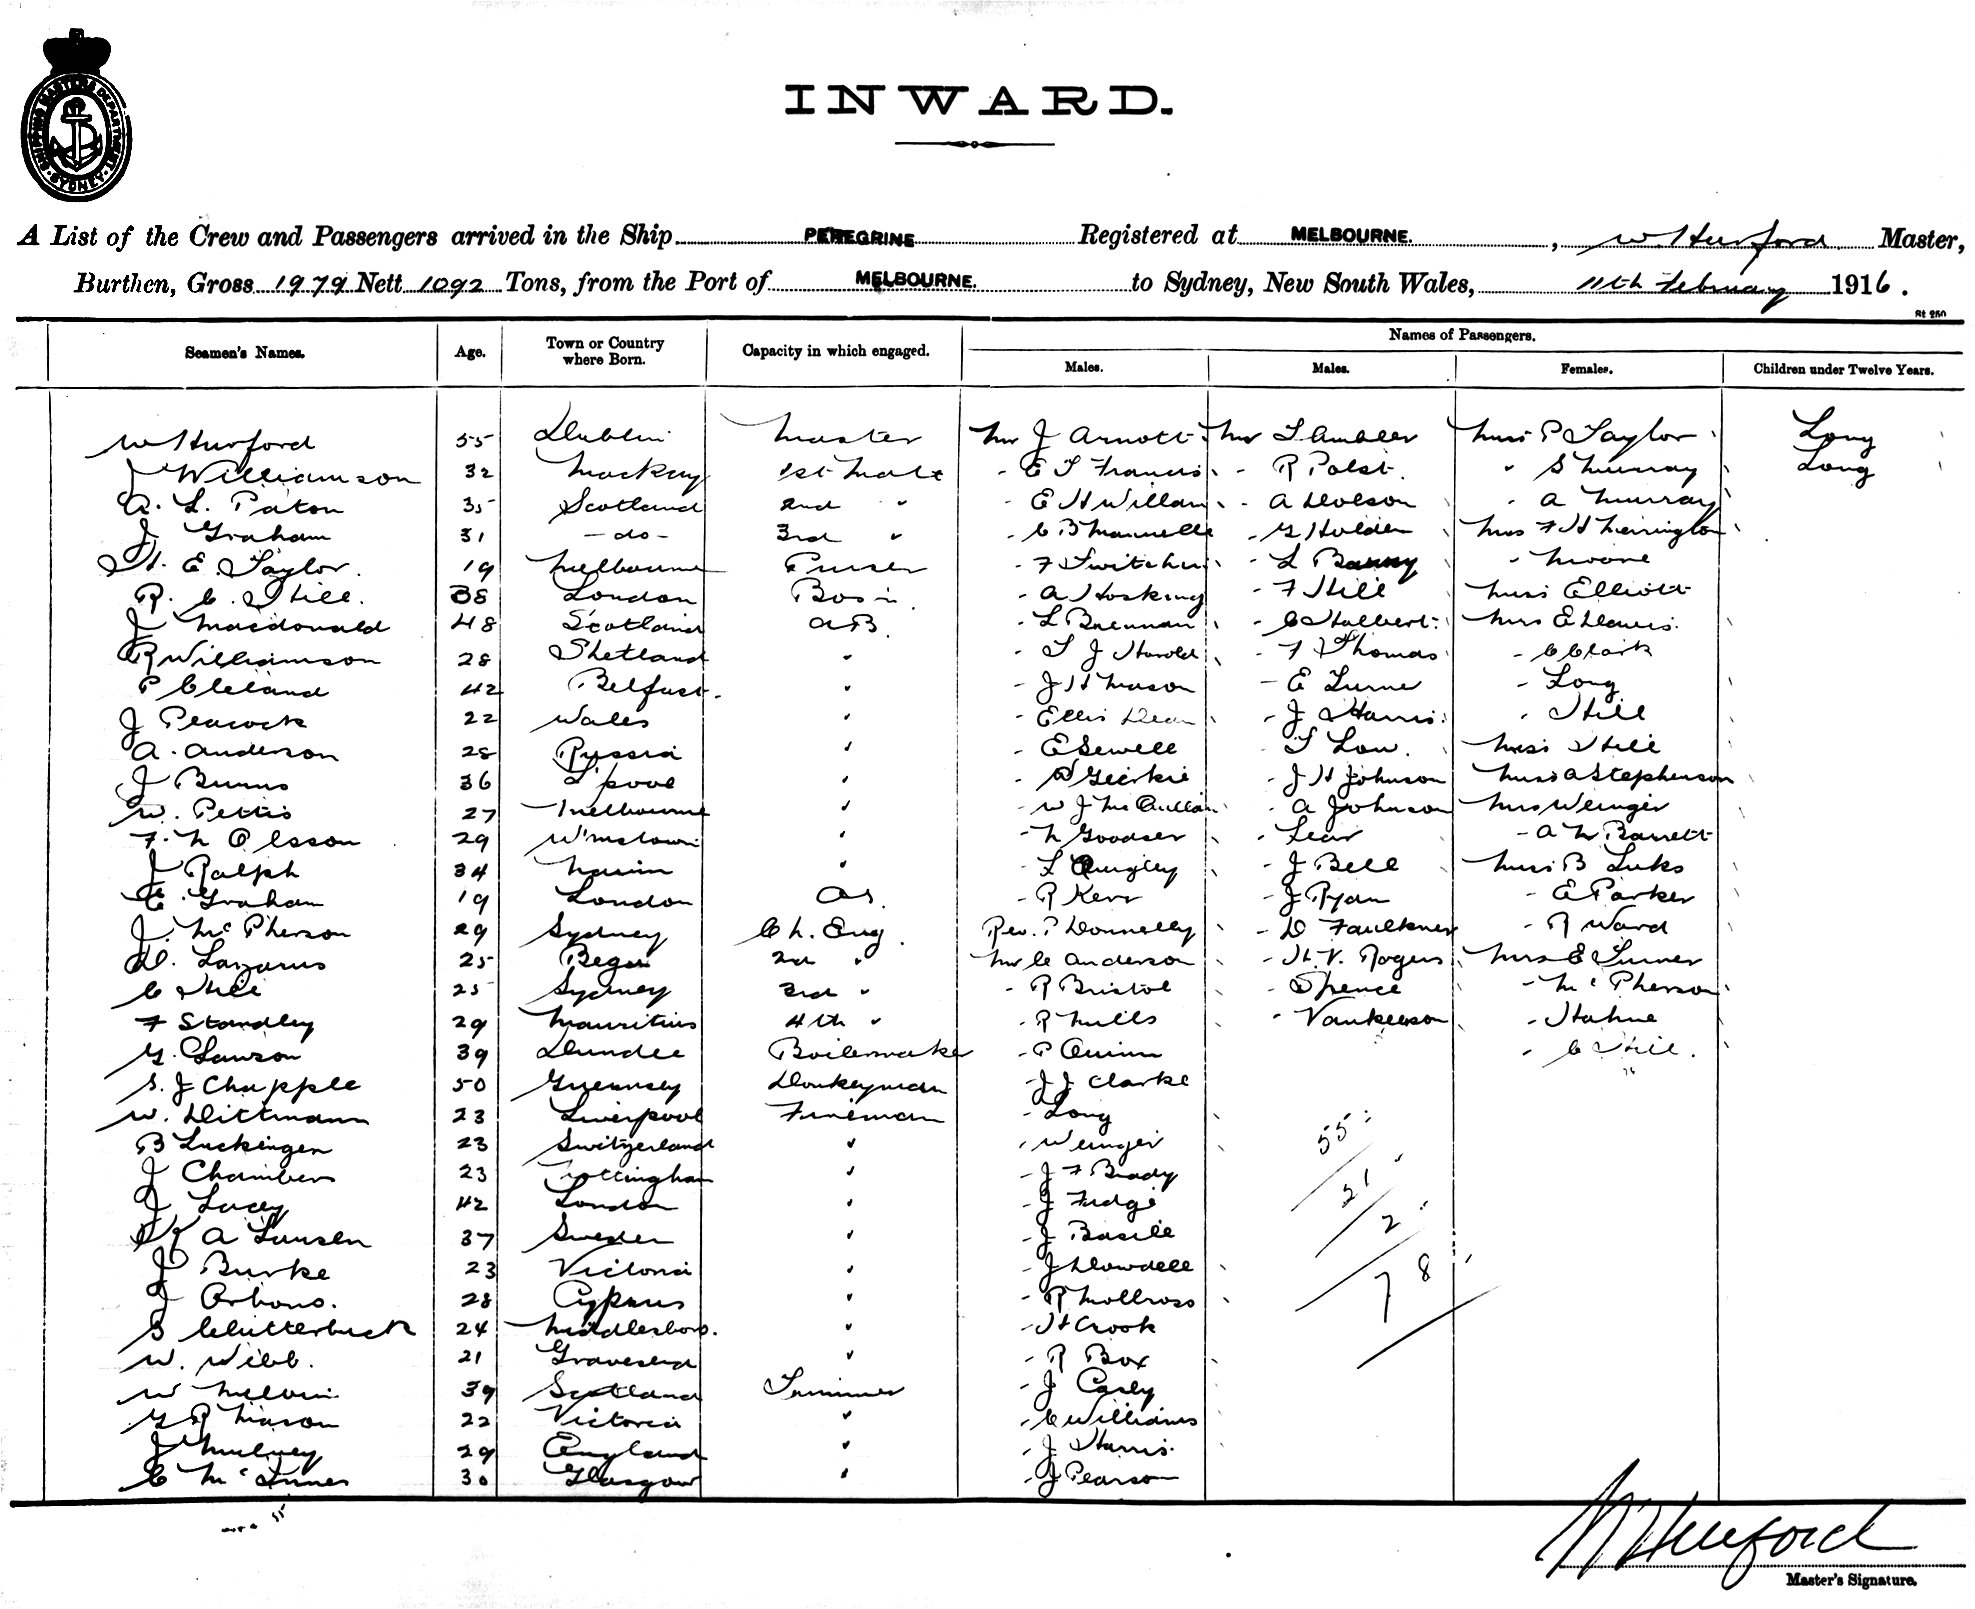 SHIPPING MASTERS DEPARTMENT SYDNEY
INWARD.
A List of the Crew and Passengers arrived in the Ship PEREGRINE Registered at MELBOURNE. , W. Hurford Master,
Burthen, Gross 1979 Nett 1092 Tons, from the Port of MELBOURNE. to Sydney, New South Wales, 11th February 1916.
St 250
Seamen's Names. Age. Town or Country where Born. Capacity in which engaged. Names of Passengers.
Males. Males. Females. Children under Twelve Years.
W Hurford 55 Dublin Master Mr J Arnott Mr S Ambler Miss P Taylor Long
J Williamson 32 Mackay 1st Mate - E S Francis - R Polst. " S Murray Long
A. L. Paton 35 Scotland 2nd " - E H Willan - A Dolson - A Murray
J Graham 31 - do - 3rd " - C B Mannell - G Holden Miss F H Lerrington
H. E. Taylor. 19 Melbourne Purser - F - L - Moore
R. C. Hill. 38 London Bosin. - A Hosking - F Hill Miss Elliott
J Macdonald 48 Scotland AB. - L Brennan - C Halbert. Mrs E Davis.
R Williamson 28 Shetland " - S J Harold - F Thomas - C Clark
P Cleland 42 Belfast. " - J H Mason - E Turner - Long
J Peacock 22 Wales " - Ellis Dean - J Harris. - Hill
A. Anderson 28 Russia " - E Sewell - S Low. Miss Hill
J Burns 36 L'pool " - Geirkie - J H Johnson Miss A Stephenson
W. Pettis 27 Melbourne " - W J McCullan - A Johnson Mrs Weinger
F. N Olsson 29 W'mstown " - N Goodser - Lear - A M Barrett
J Ralph 34 " - L Quigley - J Bell Miss B Luks
E. Graham 19 London OS. - R Kerr - J Ryan - E Parker
J. McPherson 29 Sydney Ch. Eng. Rev. P Donnelly - D Faulkner - R Ward
D. Lazarus 25 Bega 2nd " Mr C Anderson - H. V. Rogers Mrs E Turner
C Hill 25 Sydney 3rd " - R Bristol - Spence - McPherson
F Standley 29 Mauritius 4th " - R Mills - Vankeerson - Hahne
G. Lawson 39 Dundee Boilermaker - P Quinn - C Hill.
S. J Chapple 50 Guernsey Donkeyman - J J Clarke
W. Dittmann 23 Liverpool Fireman - Long
B Luckingen 23 Switzerland " - Weinger 55
J Chambers 23 Nottingham " - J F Brady
J Lacey 42 London " - J Fudge 21
K A Larsen 37 Sweden " - J Basile 2
J Burke 23 Victoria " - J Dowdell 78
J Orbons. 28 Cyprus " - R Mollross
S Clutterbuck 24 Middlesboro. " - H Crook
W. Webb. 21 Gravesend " - R Box
W Melvin 39 Scotland Trimmer - J Casey
G R Mason 22 Victoria " - C Williams
J Mulvey 29 England " - J Harris.
C McInnes 30 Glasgow " - J Pearson
W Hurford
Master's Signature.